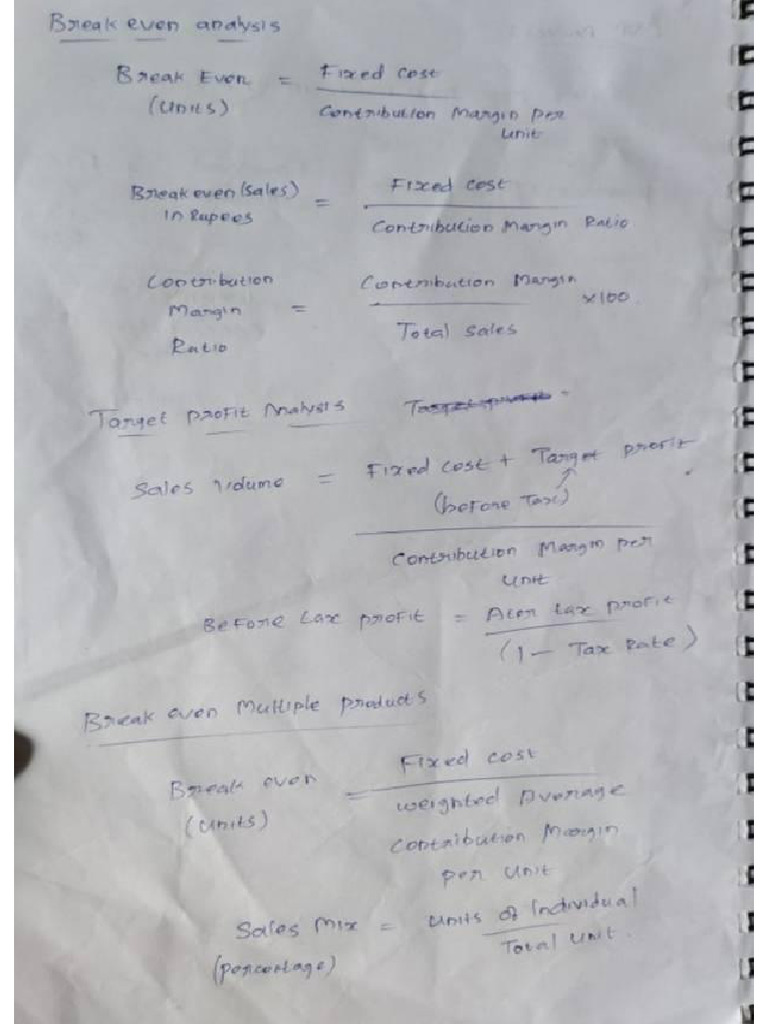 Break even analysis
Break Even = Fixed cost
(Units) Contribution Margin per
unit
Break even (sales) = Fixed cost
in Rupees Contribution Margin Ratio
Contribution Contribution Margin
Margin = ×100
Ratio Total sales
Target profit Analysis
Sales volume = Fixed cost + Target profit
(before Tax)
Contribution Margin per
unit
Before tax profit = Ater tax profit
(1 - Tax Rate)
Break even Multiple products
Break even = Fixed cost
(units) weighted Average
Contribution Margin
per unit
Sales Mix = units of Individual
(percentage) Total unit.